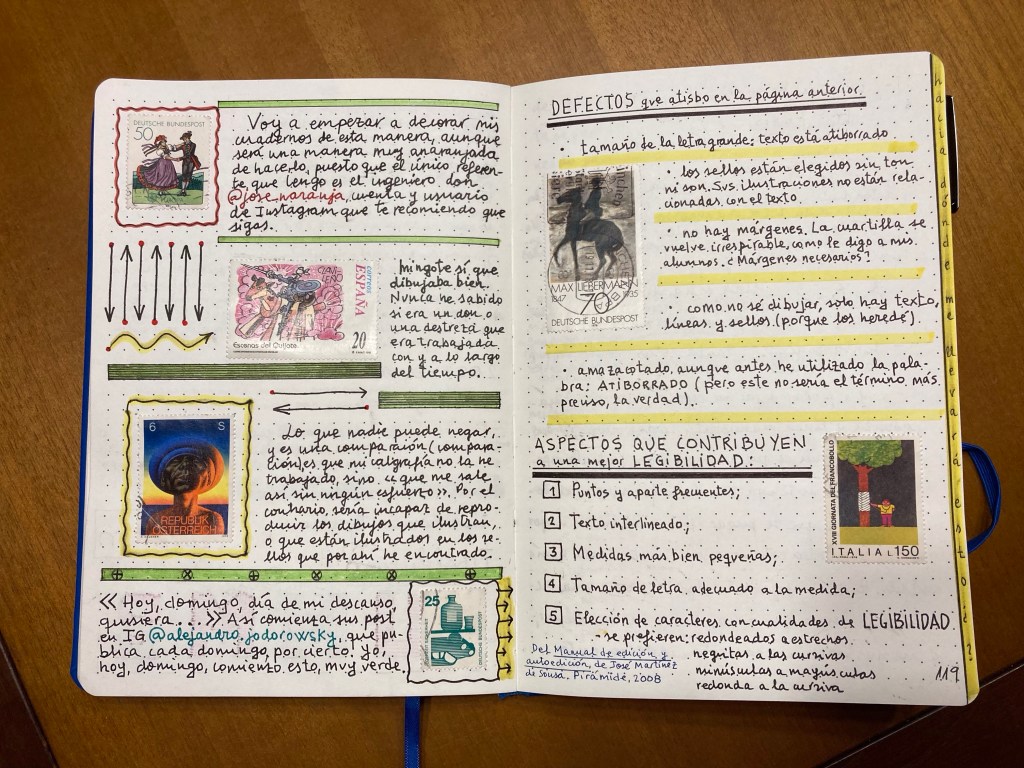 DEUTSCHE BUNDESPOST
50
Voy a empezar a decorar mis
cuadernos de esta manera, aunque
será una manera muy anaranjada
de hacerlo, puesto que el único referen-
te que tengo es el ingeniero don
@jose_naranja, cuenta y usuario
de Instagram que te recomiendo que
sigas.
CLAVI-
LEÑO
CORREOS
ESPAÑA
Escenas del Quijote
20
Mingote sí que
dibujaba bien.
Nunca he sabido
si era un don o
una destreza que
era trabajada
con y a lo largo
del tiempo.
6 S
REPUBLIK
ÖSTERREICH
Lo que nadie puede negar,
y es una comparación (compara-
ciones que mi caligrafía no la he
trabajado, sino «que me sale
así sin ningún esfuerzo». Por el
contrario, sería incapaz de repro-
ducir los dibujos que ilustran,
o que están ilustrados en los se-
llos que por ahí he encontrado.
« Hoy, domingo, día de mi descanso,
quisiera... » Así comienza sus post
en IG @alejandro.jodorowsky, que pu-
blica cada domingo por cierto! Yo,
hoy, domingo, comiento esto, muy verde,
25
DEUTSCHE BUNDESPOST
DEFECTOS que atisbo en la página anterior.
· tamaño de la letra grande: texto está atiborrado
· los sellos están elegidos sin ton
ni son. Sus ilustraciones no están rela-
cionadas con el texto
· no hay márgenes. La cuartilla se
vuelve irrespirable, como le digo a mis
alumnos. ¿Márgenes necesarios?
MAX LIEBERMANN
1847 1935
70
DEUTSCHE BUNDESPOST
· como no sé dibujar, solo hay texto,
líneas y sellos (porque los heredé).
· amazacotado, aunque antes he utilizado la pala-
bra: ATIBORRADO (pero este no sería el término más
preciso, la verdad).
ASPECTOS QUE CONTRIBUYEN
a una mejor LEGIBILIDAD:
1 Puntos y aparte frecuentes;
2 Texto interlineado;
3 Medidas más bien pequeñas;
4 Tamaño de letra adecuado a la medida;
5 Elección de caracteres con cualidades de LEGIBILIDAD
- se prefieren: redondeados a estrechos
negritas a las cursivas
minúsculas a mayúsculas
redonda a la cursiva
XVIII GIORNATA DEL FRANCOBOLLO
ITALIA L.150
Del Manual de edición y
autoedición, de José Martínez
de Sousa. Pirámide, 2008
119
hacia dónde me llevará esto?